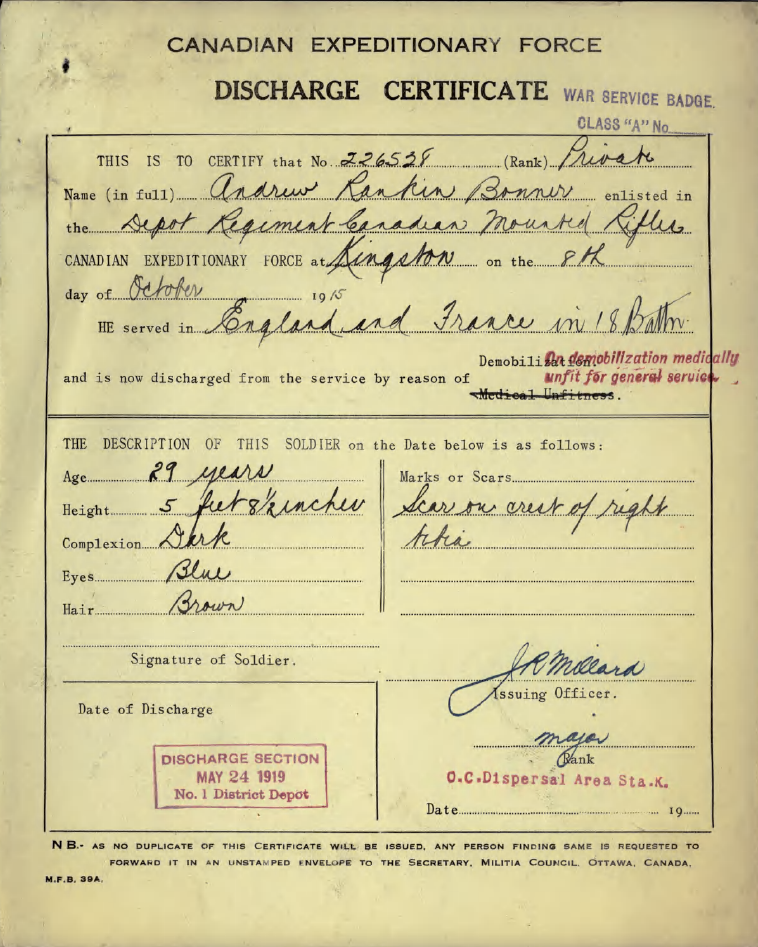 CANADIAN EXPEDITIONARY FORCE
DISCHARGE CERTIFICATE
WAR SERVICE BADGE.
CLASS "A" No
THIS IS TO CERTIFY that No. 226538 (Rank) Private
Name (in full) Andrew Rankin Bonner enlisted in
the Depot Regiment Canadian Mounted Rifles
CANADIAN EXPEDITIONARY FORCE at Kingston on the 8th
day of October 1915
HE served in England and France in 18 Battn.
Demobilization.
On demobilization medically
and is now discharged from the service by reason of
unfit for general service.
Medical Unfitness.
THE DESCRIPTION OF THIS SOLDIER on the Date below is as follows:
Age 29 years
Marks or Scars
Height 5 feet 8½ inches
Scar on crest of right
Complexion Dark
tibia
Eyes Blue
Hair Brown
Signature of Soldier.
JR Millard
Issuing Officer.
Date of Discharge
Major
Rank
DISCHARGE SECTION
MAY 24 1919
No. 1 District Depot
O.C. Dispersal Area Sta. K.
Date 19
N B.- AS NO DUPLICATE OF THIS CERTIFICATE WILL BE ISSUED, ANY PERSON FINDING SAME IS REQUESTED TO
FORWARD IT IN AN UNSTAMPED ENVELOPE TO THE SECRETARY, MILITIA COUNCIL, OTTAWA, CANADA.
M.F.B. 39A.